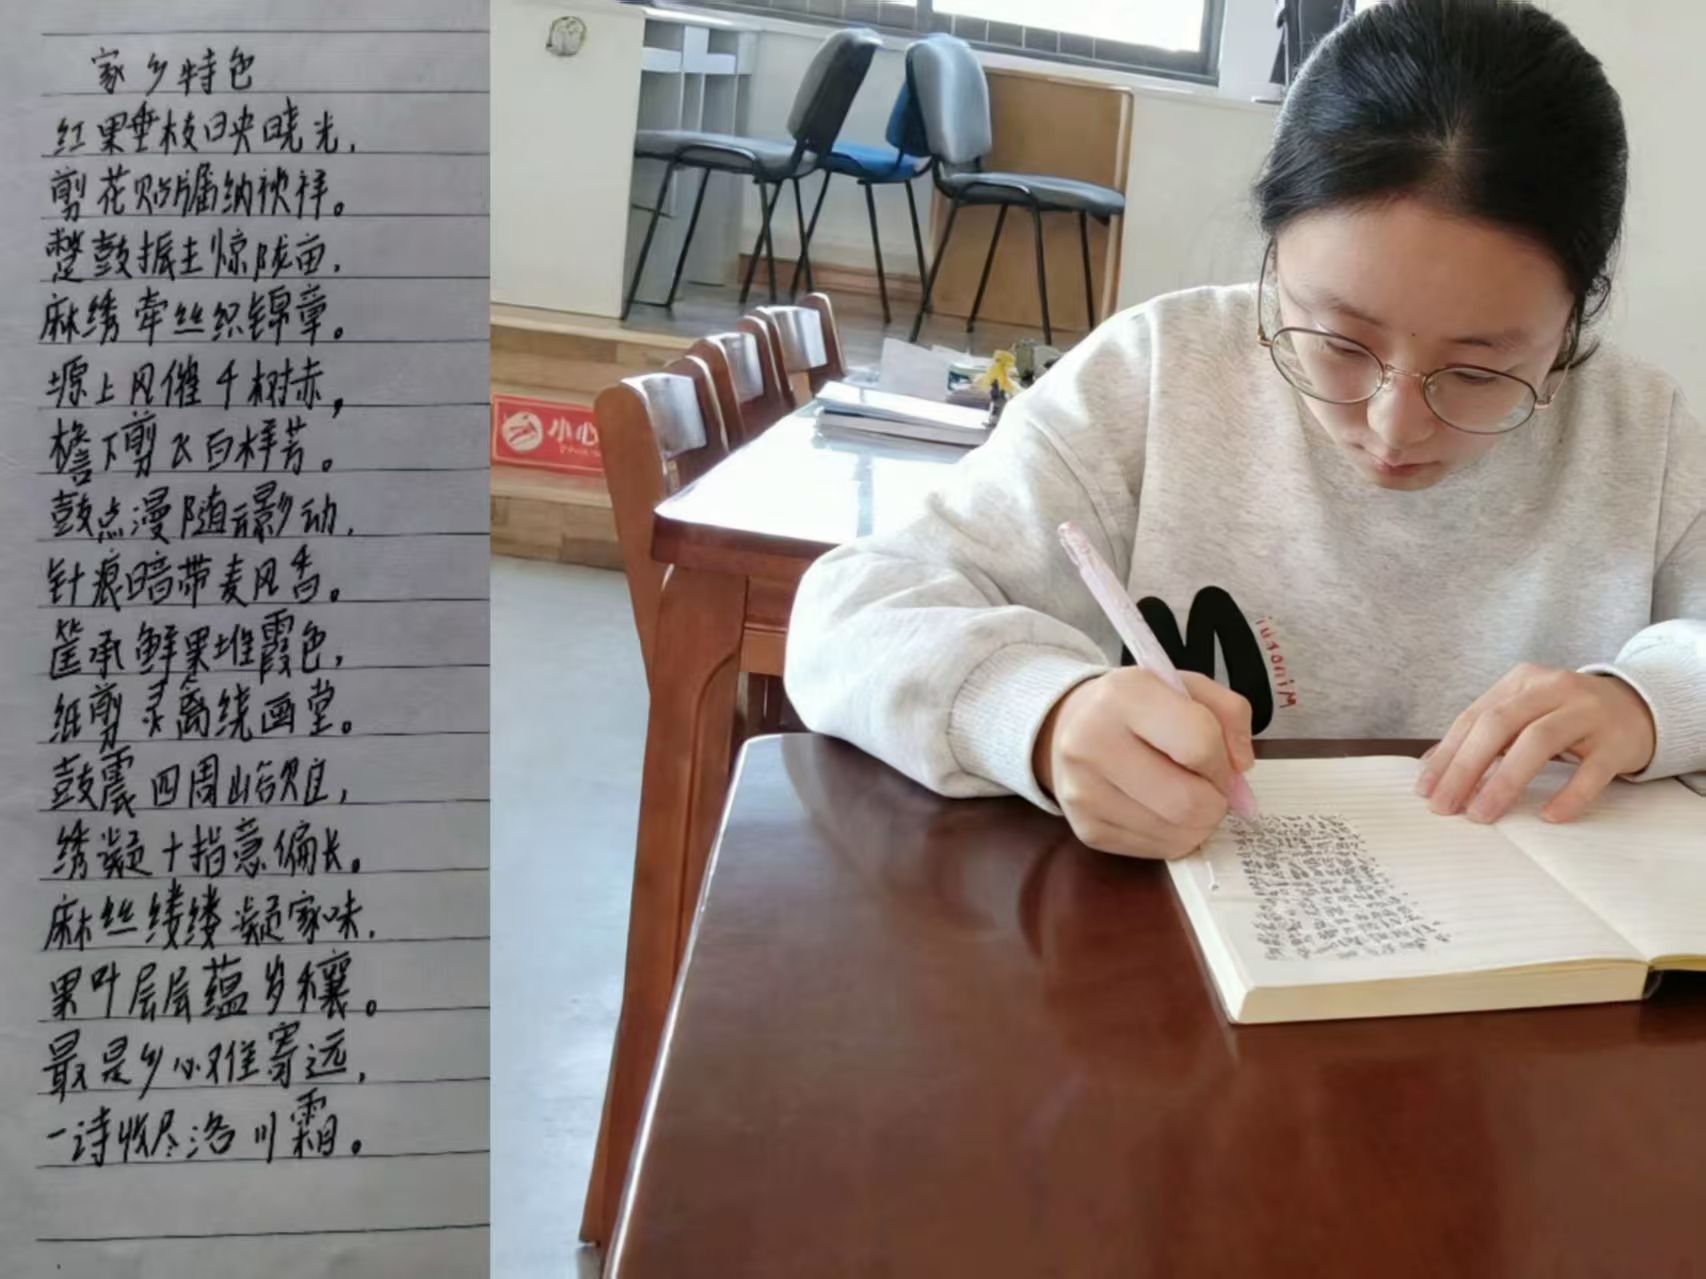 家乡特色
红果垂枝映晓光,
剪花贴牖纳祯祥。
蹩鼓振土惊陇亩,
麻绣牵丝织锦章。
塬上风催千树赤,
檐下剪飞百样芳。
鼓点漫随云影动,
针痕暗带麦风香。
筐承鲜果堆霞色,
纸剪灵禽绕画堂。
鼓震四周山欲
绣凝十指意偏长。
麻丝缕缕凝家味,
果叶层层蕴岁穰。
最是乡心难寄远,
一诗收尽洛川霜。
小心
Minosui